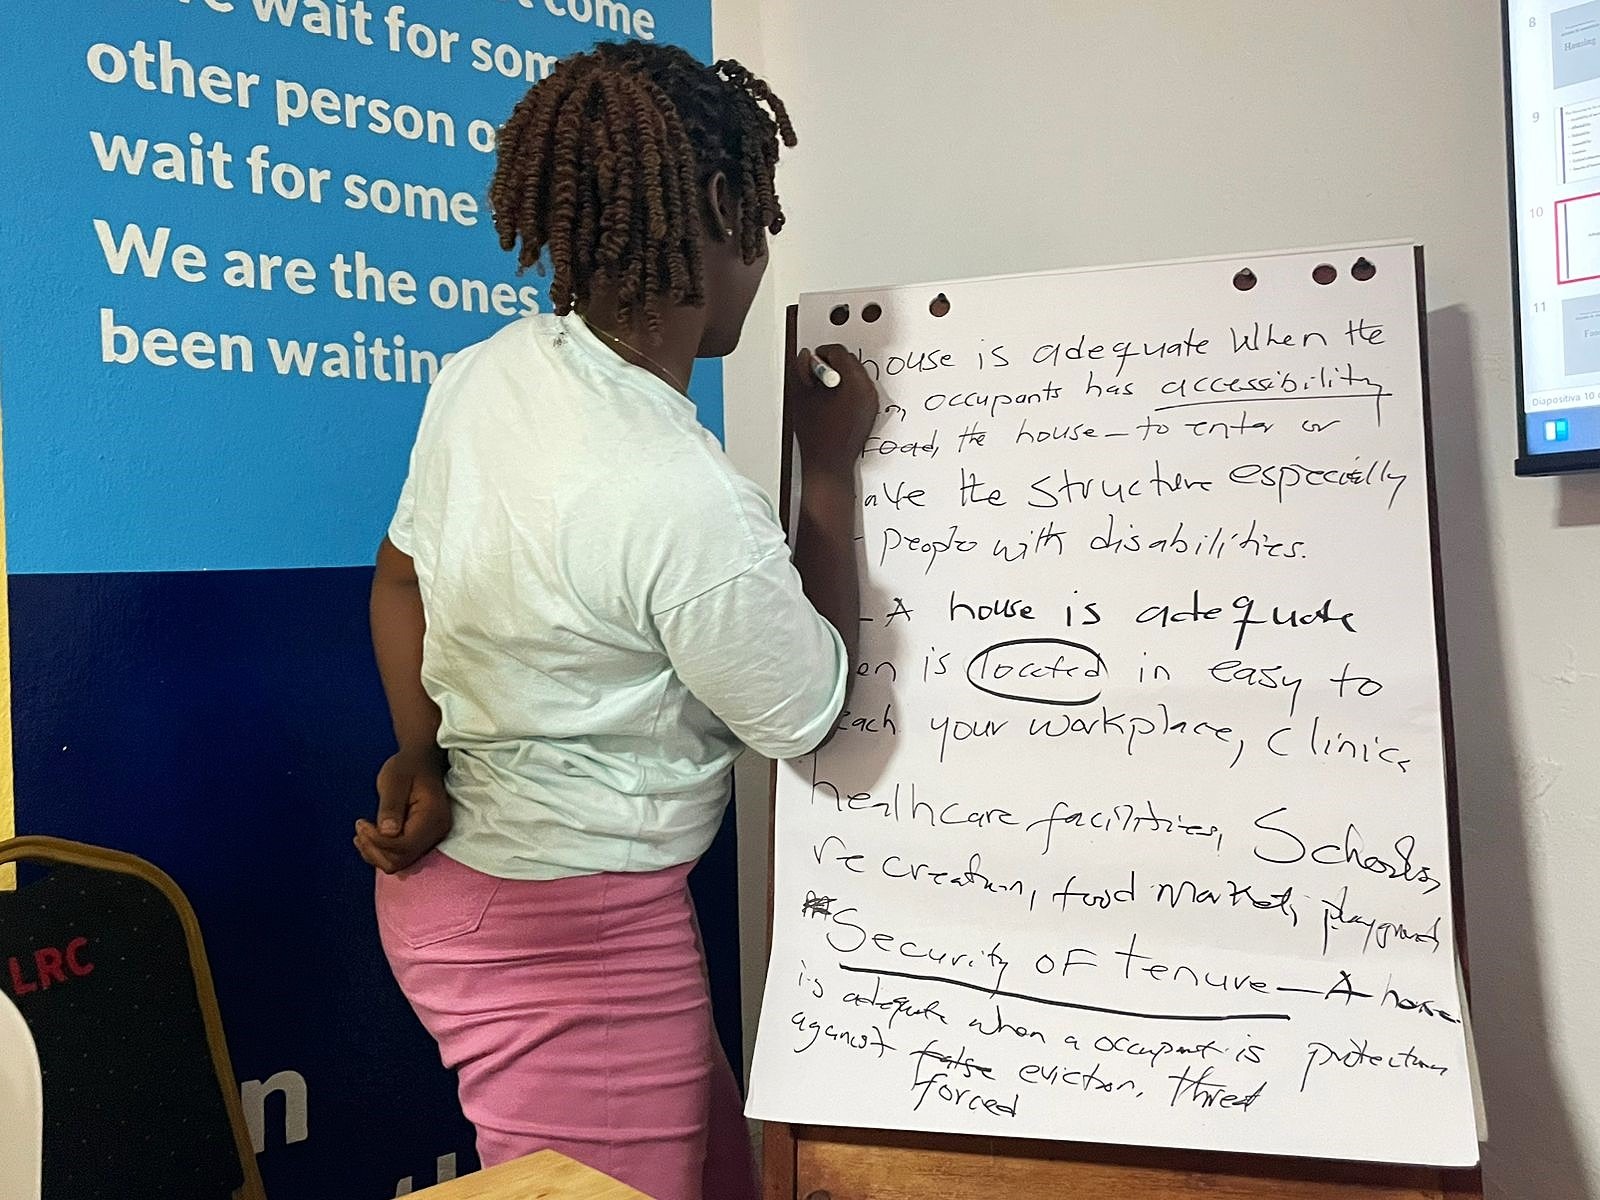 come
wait for som
other person o
wait for some
We are the ones
been waiting
LRC
n
house is adequate when the
occupants has accessibility
road, the house - to enter or
the structure especially
people with disabilities.
- A house is adequate
en is located in easy to
each your workplace, clinics
healthcare facilities, Schools,
recreation, food market, playground
Security of tenure - A house
is adequate when a occupant is protection
against false eviction, threat
forced
8
Housing
9
10
11
Diapositiva 10